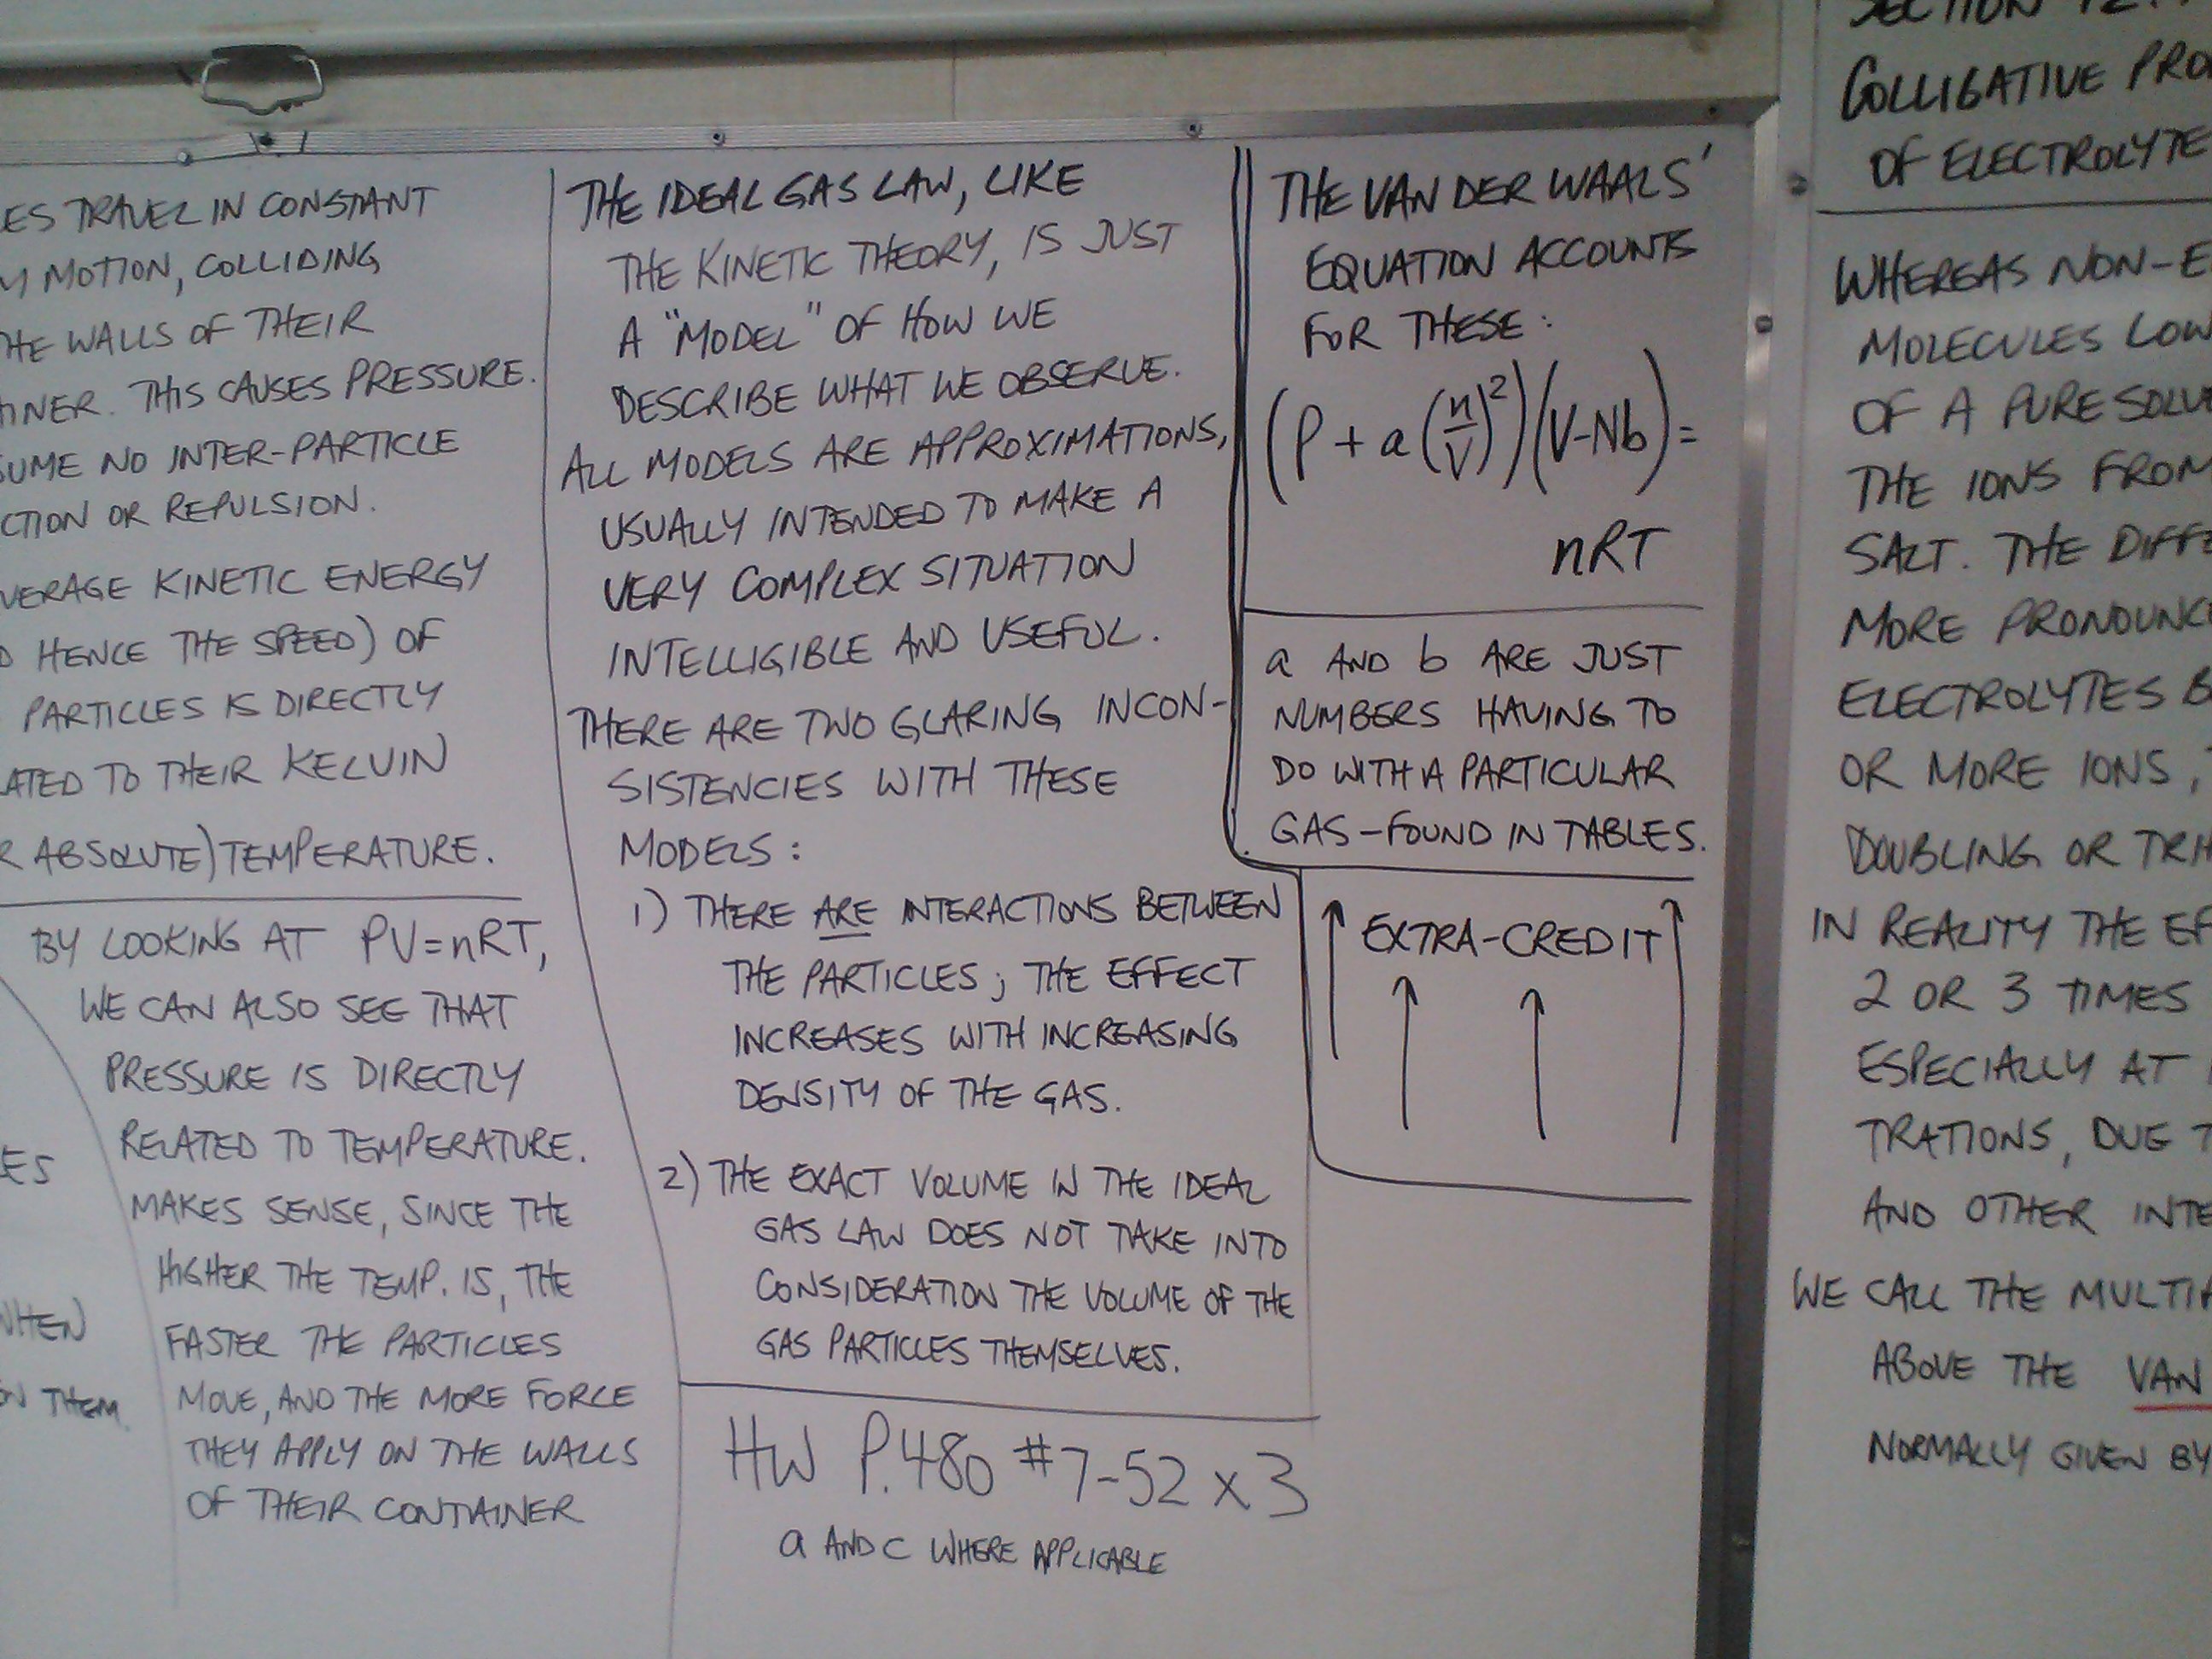 ES TRAVEL IN CONSTANT
MOTION, COLLIDING
THE WALLS OF THEIR
AINER. THIS CAUSES PRESSURE.
SUME NO INTER-PARTICLE
CTION OR REPULSION.
VERAGE KINETIC ENERGY
D HENCE THE SPEED) OF
PARTICLES IS DIRECTLY
ATED TO THEIR KELVIN
R ABSOLUTE) TEMPERATURE.
BY LOOKING AT PV=nRT,
WE CAN ALSO SEE THAT
PRESSURE IS DIRECTLY
RELATED TO TEMPERATURE.
MAKES SENSE, SINCE THE
HIGHER THE TEMP. IS, THE
FASTER THE PARTICLES
MOVE, AND THE MORE FORCE
THEY APPLY ON THE WALLS
OF THEIR CONTAINER
ES
WHEN
ON THEM.
THE IDEAL GAS LAW, LIKE
THE KINETIC THEORY, IS JUST
A "MODEL" OF HOW WE
DESCRIBE WHAT WE OBSERVE.
ALL MODELS ARE APPROXIMATIONS,
USUALLY INTENDED TO MAKE A
VERY COMPLEX SITUATION
INTELLIGIBLE AND USEFUL.
THERE ARE TWO GLARING INCON-
SISTENCIES WITH THESE
MODELS:
1) THERE ARE INTERACTIONS BETWEEN
THE PARTICLES; THE EFFECT
INCREASES WITH INCREASING
DENSITY OF THE GAS.
2) THE EXACT VOLUME IN THE IDEAL
GAS LAW DOES NOT TAKE INTO
CONSIDERATION THE VOLUME OF THE
GAS PARTICLES THEMSELVES.
HW P.480 #7-52 x 3
a AND C WHERE APPLICABLE
THE VAN DER WAALS'
EQUATION ACCOUNTS
FOR THESE:
(P + a(n/V)²)(V-Nb) =
nRT
a AND b ARE JUST
NUMBERS HAVING TO
DO WITH A PARTICULAR
GAS-FOUND IN TABLES.
↑ EXTRA-CREDIT ↑
↑ ↑
SECTION 12.
COLLIGATIVE PRO
OF ELECTROLYTE
WHEREAS NON-E
MOLECULES LOW
OF A PURE SOLV
THE IONS FROM
SALT. THE DIFFE
MORE PRONOUNC
ELECTROLYTES B
OR MORE IONS,
DOUBLING OR TRI
IN REALITY THE EF
2 OR 3 TIMES
ESPECIALLY AT
TRATIONS, DUE T
AND OTHER INTE
WE CALL THE MULTI
ABOVE THE VAN
NORMALLY GIVEN BY